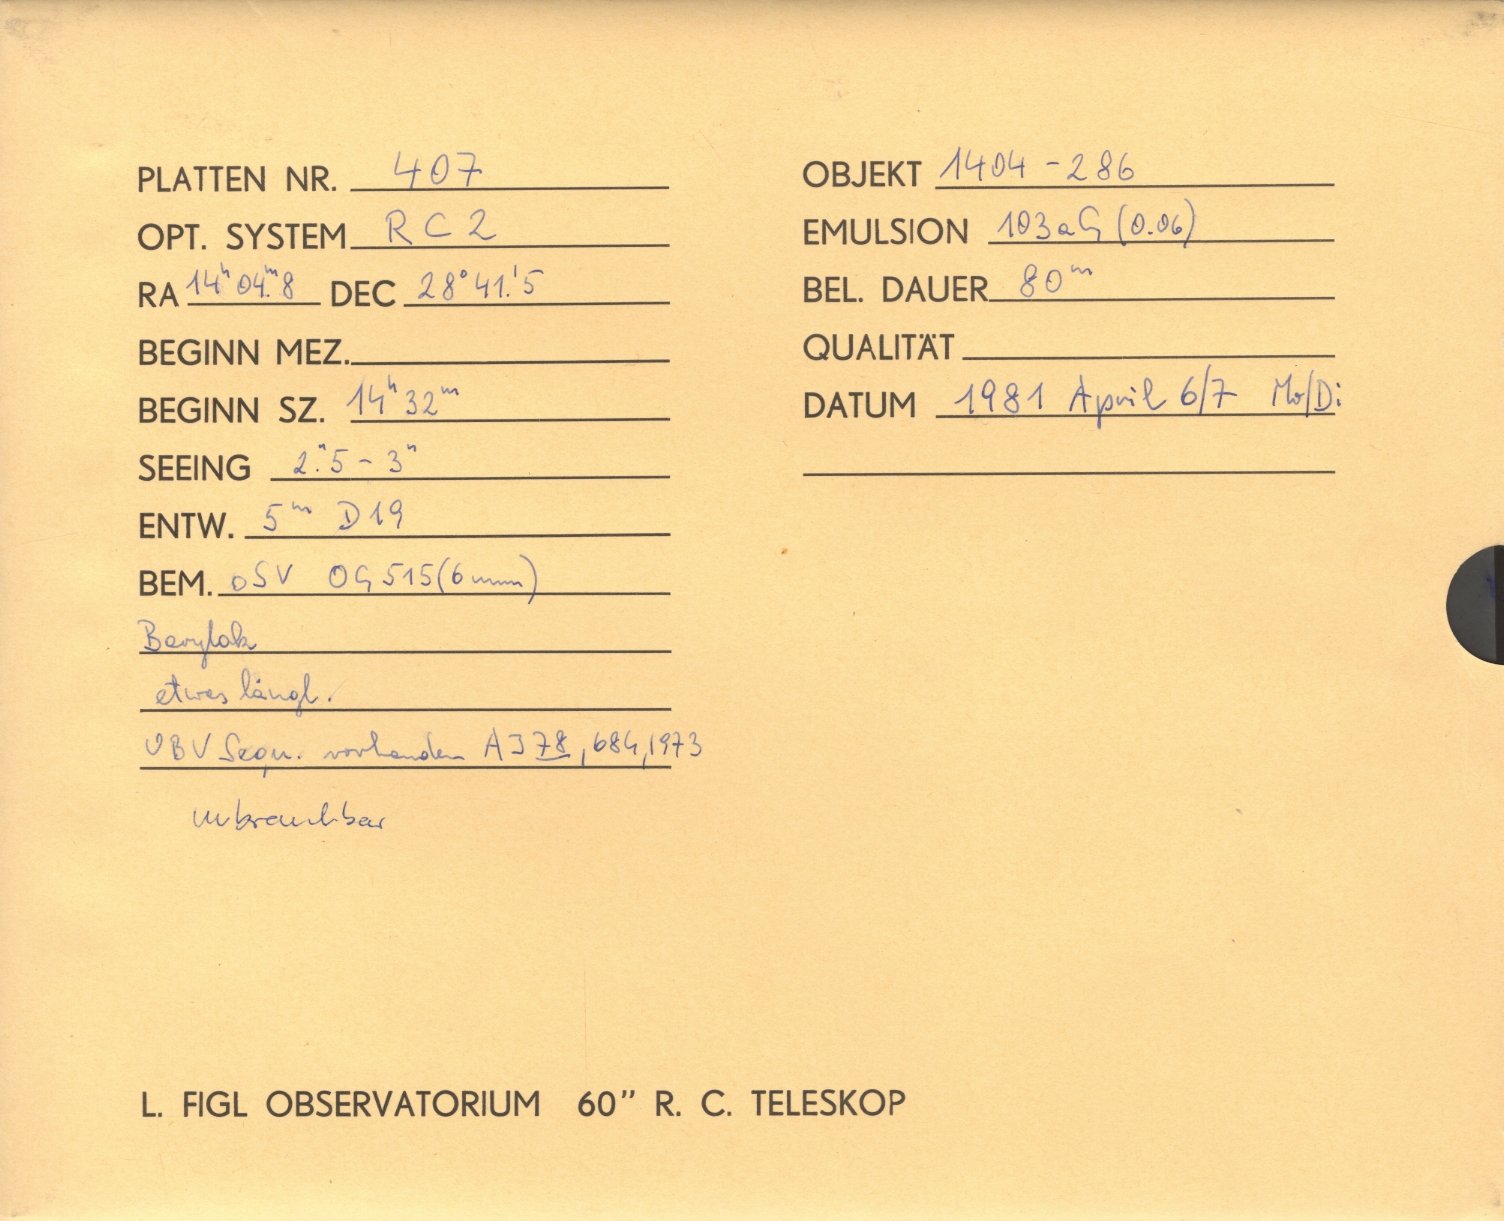 PLATTEN NR. 407
OPT. SYSTEM RC2
RA 14ʰ04ᵐ.8 DEC 28°41.'5
BEGINN MEZ.
BEGINN SZ. 14ʰ32ᵐ
SEEING 2."5 - 3"
ENTW. 5ᵐ D19
BEM. oSV OG515(6mm)
etwas längl.
UBV Sequ. vorhanden AJ78, 684, 1973
unbrauchbar
OBJEKT 1404-286
EMULSION 103aG (0.06)
BEL. DAUER 80ᵐ
QUALITÄT
DATUM 1981 April 6/7 Mo/Di
L. FIGL OBSERVATORIUM 60" R. C. TELESKOP